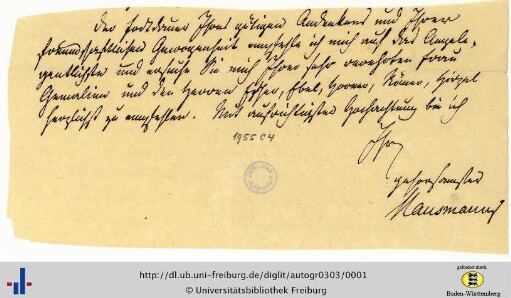 Der Fortdauer Ihres gütigen Andenkens und Ihrer
freundschaftlichen Gewogenheit empfehle ich mich auf das Angele-
gentlichste und ersuche Sie mich Ihrer sehr verehrten Frau
Gemalinn und den Herren Esser, Ebel, Horner, Römer, Hirzel
herzlichst zu empfehlen. Mit aufrichtigster Hochachtung bin ich
1955 C4
Ihr
gehorsamster
Hausmann
http://dl.ub.uni-freiburg.de/diglit/autogr0303/0001
© Universitätsbibliothek Freiburg
gefördert durch
Baden-Württemberg